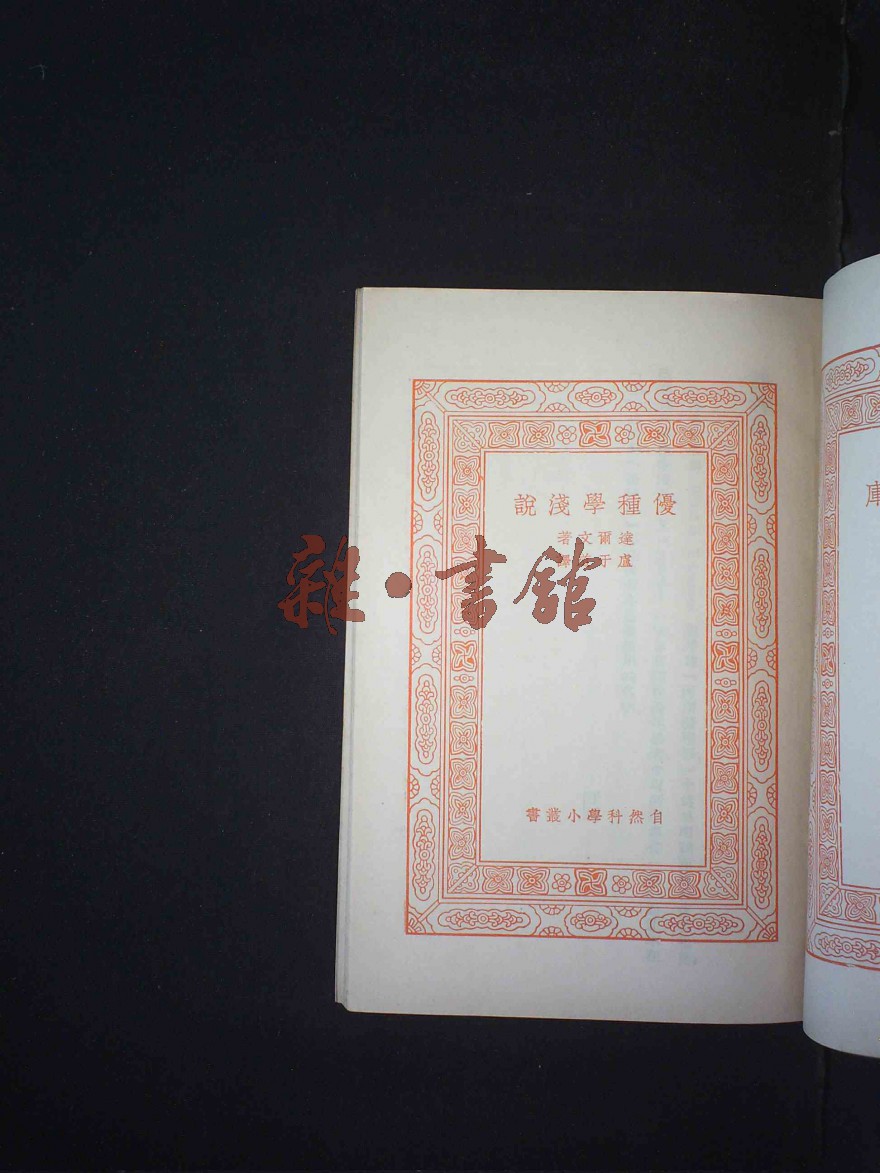 優種學淺說
達爾文著
盧于 譯
自然科學小叢書
庫
雜·書館